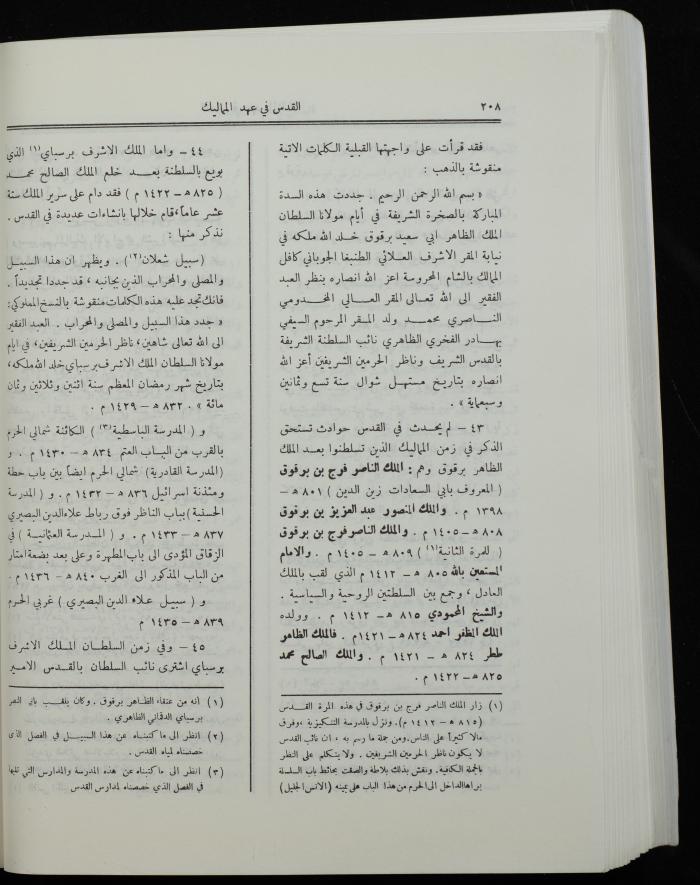 ٢٠٨
القدس في عهد المماليك
فقد قرأت على واجهتها القبلية الكلمات الاتية
منقوشة بالذهب :
« بسم الله الرحمن الرحيم . جددت هذه السدة
المباركة بالصخرة الشريفة في أيام مولانا السلطان
الملك الظاهر ابي سعيد برقوق خلد الله ملكه في
نيابة المقر الاشرف العلائي الطنبغا الجوباني كافل
الممالك بالشام المحروسة اعز الله انصاره بنظر العبد
الفقير الى الله تعالى المقر العالي المخدومي
الناصري محمد ولد المقر المرحوم السيفي
بهادر الفخري الظاهري نائب السلطنة الشريفة
بالقدس الشريف وناظر الحرمين الشريفين أعز الله
انصاره بتاريخ مستهل شوال سنة تسع وثمانين
وسبعماية » .
٤٣ – لم يحدث في القدس حوادث تستحق
الذكر في زمن المماليك الذين تسلطنوا بعد الملك
الظاهر برقوق وهم : الملك الناصر فرج بن برقوق
( المعروف بابي السعادات زين الدين ) ٨٠١ ه –
١٣٩٨ م . والملك المنصور عبد العزيز بن برقوق
٨٠٨ ه – ١٤٠٥ م . والملك الناصر فرج بن برقوق
( للمرة الثانية(١) ) ٨٠٩ ه – ١٤٠٥ م . والامام
المستعين بالله ٨٠٥ ه – ١٤١٢ م الذي لقب بالملك
العادل ، وجمع بين السلطتين الروحية والسياسية .
والشيخ المحمودي ٨١٥ ه – ١٤١٢ م . وولده
الملك المظفر احمد ٨٢٤ ه – ١٤٢١ م . فالملك الظاهر
ططر ٨٢٤ ه – ١٤٢١ م . والملك الصالح محمد
٨٢٥ ه – ١٤٢٢ م .
(١) زار الملك الناصر فرج بن برقوق في هذه المرة القدس
(٨١٥ ه – ١٤١٢ م). ونزل بالمدرسة التنكيزية ،وفرق
مالا كثيراً على الناس.ومن جملة ما رسم به ، ان نائب القدس
لا يكون ناظر الحرمين الشريفين . ولا يتكلم على النظر
بالجملة الكافية. ونقش بذلك بلاطة والصقت بحائط باب السلسلة
يراها الداخل الى الحرم من هذا الباب على يمينه (الانس الجليل)
٤٤ – واما الملك الاشرف برسباي(١) الذي
بويع بالسلطنة بعد خلع الملك الصالح محمد
( ٨٢٥ ه – ١٤٢٢ م ) فقد دام على سرير الملك ستة
عشر عاماً،قام خلالها بانشاءات عديدة في القدس .
نذكر منها :
(سبيل شعلان(٢)) . ويظهر ان هذا السبيل
والمصلى والمحراب الذين بجانبه ، قد جددا تجديداً .
فانك تجد عليه هذه الكلمات منقوشة بالنسخ المملوكي:
« جدد هذا السبيل والمصلى والمحراب . العبد الفقير
الى الله تعالى شاهين، ناظر الحرمين الشريفين، في ايام
مولانا السلطان الملك الاشرف برسباي خلد الله ملكه،
بتاريخ شهر رمضان المعظم سنة اثنين وثلاثين وثمان
مائة » . ٨٣٢ ه – ١٤٢٩ م .
و ( المدرسة الباسطية(٣) ) الكائنة شمالي الحرم
بالقرب من الباب العتم ٨٣٤ ه – ١٤٣٠ م . و
(المدرسة القادرية) شمالي الحرم ايضاً بين باب حطة
ومئذنة اسرائيل ٨٣٦ ه – ١٤٣٢ م . و ( المدرسة
الحسنية ) بباب الناظر فوق رباط علاءالدين البصيري
٨٣٧ ه – ١٤٣٣ م . و ( المدرسة العثمانية ) في
الزقاق المؤدى الى باب المطهرة وعلى بعد بضعة امتار
من الباب المذكور الى الغرب ٨٤٠ ه – ١٤٣٦ م .
و ( سبيل علاء الدين البصيري ) غربي الحرم
٨٣٩ ه – ١٤٣٥ م
٤٥ – وفي زمن السلطان الملك الاشرف
برسباي اشترى نائب السلطان بالقدس الامير
(١) أنه من عتقاء الظاهر برقوق . وكان يلقب بابي النصر
برسباي الدقماقي الظاهري .
(٢) انظر الى ما كتبناه عن هذا السبيل في الفصل الذي
خصصناه لمياه القدس .
(٣) انظر الى ما كتبناه عن هذه المدرسة والمدارس التي تليها
في الفصل الذي خصصناه لمدارس القدس